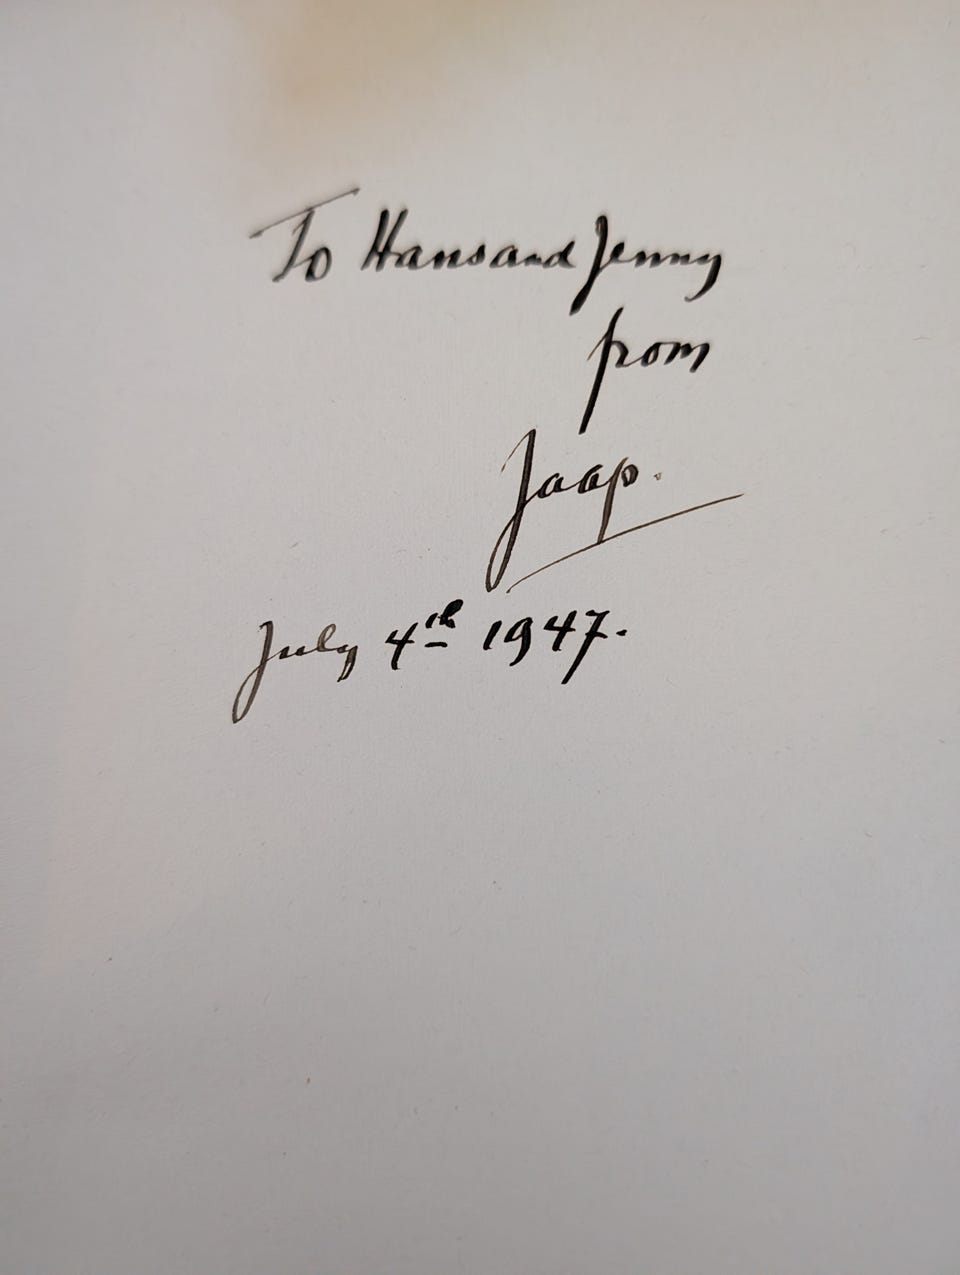 To Hans and Jenny
from
Jaap.
July 4th 1947.